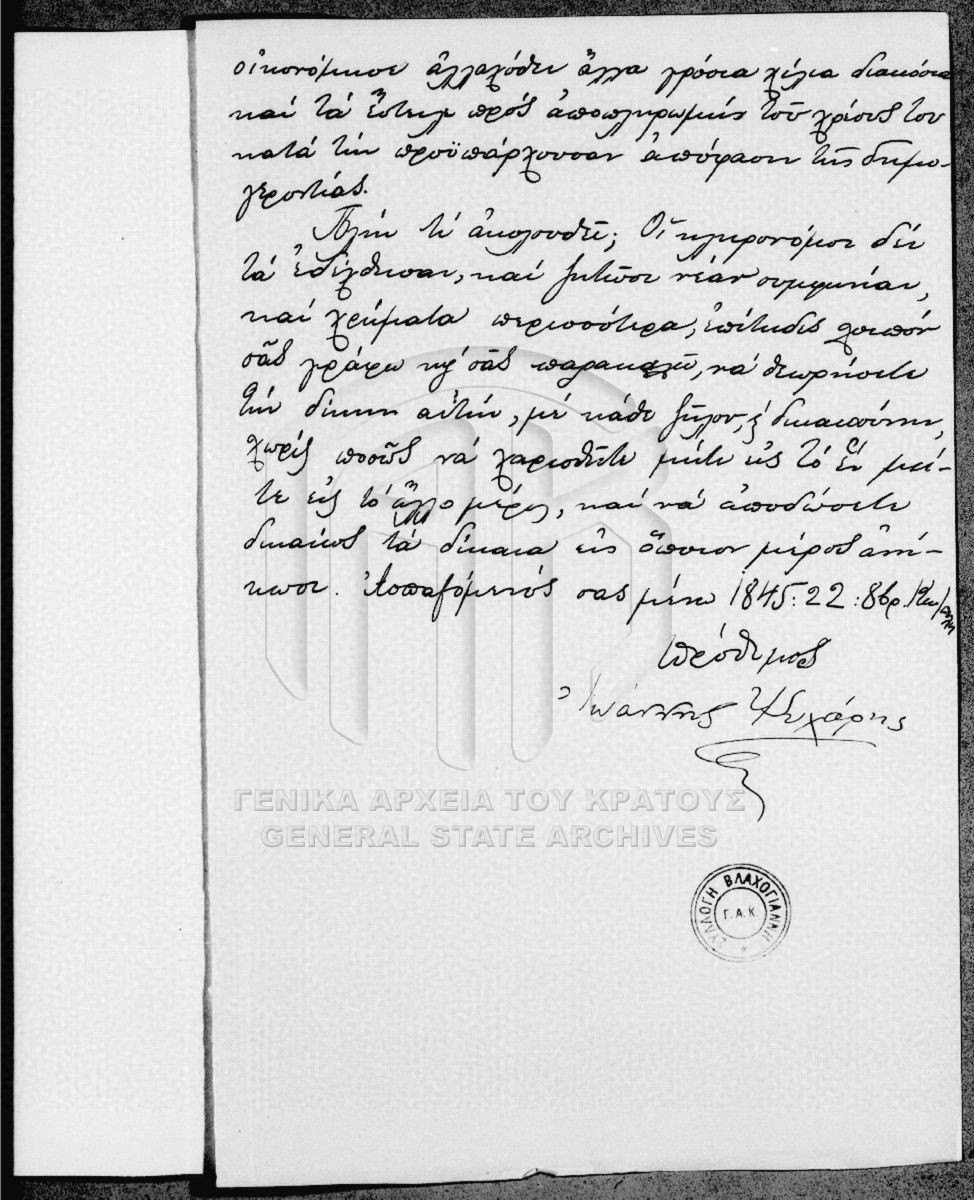 οἰκονόμησε ἀλλαχόθεν ἄλλα γρόσια χίλια διακόσια
καί τά ἔστειλε πρός ἀποπλήρωμήν τοῦ χρέους του
κατά τήν προϋπάρχουσαν ἀπόφασιν τῆς δημο-
γεροντίας.
Πλήν τί ἀκολουθεῖ; Οἱ κληρονόμοι δέν
τά ἐδέχθησαν, καί ζητοῦσι νέαν συμφωνίαν,
καί χρήματα περισσότερα, ἐπίτηδες λοιπόν
σᾶς γράφω κỳ σᾶς παρακαλῶ, νά θεωρήσετε
τήν δίκην αὐτήν, μέ κάθε ζῆλον, ϗ δικαιοσύνην,
χωρίς ποσῶς νά χαρισθῆτε μήτε εἰς τό ἕν μή-
τε εἰς τό ἄλλο μέρος, καί νά ἀποδώσετε
δικαίως τά δίκαια εἰς ὅποιον μέρος ἀνή-
κωσι. Ἀσπαζόμενός σας μένω 1845: 22: 8βρ.
πρόθυμος
Ἰωάννης Ψυχάρης
ΓΕΝΙΚΑ ΑΡΧΕΙΑ ΤΟΥ ΚΡΑΤΟΥΣ
GENERAL STATE ARCHIVES
ΣΥΛΛΟΓΗ ΒΛΑΧΟΓΙΑΝΝΗ
Γ.Α.Κ.